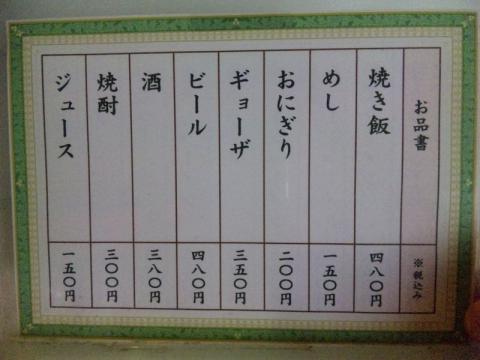 お品書
※税込み
焼き飯
四八〇円
めし
一五〇円
おにぎり
二〇〇円
ギョーザ
三五〇円
ビール
四八〇円
酒
三八〇円
焼酎
三〇〇円
ジュース
一五〇円